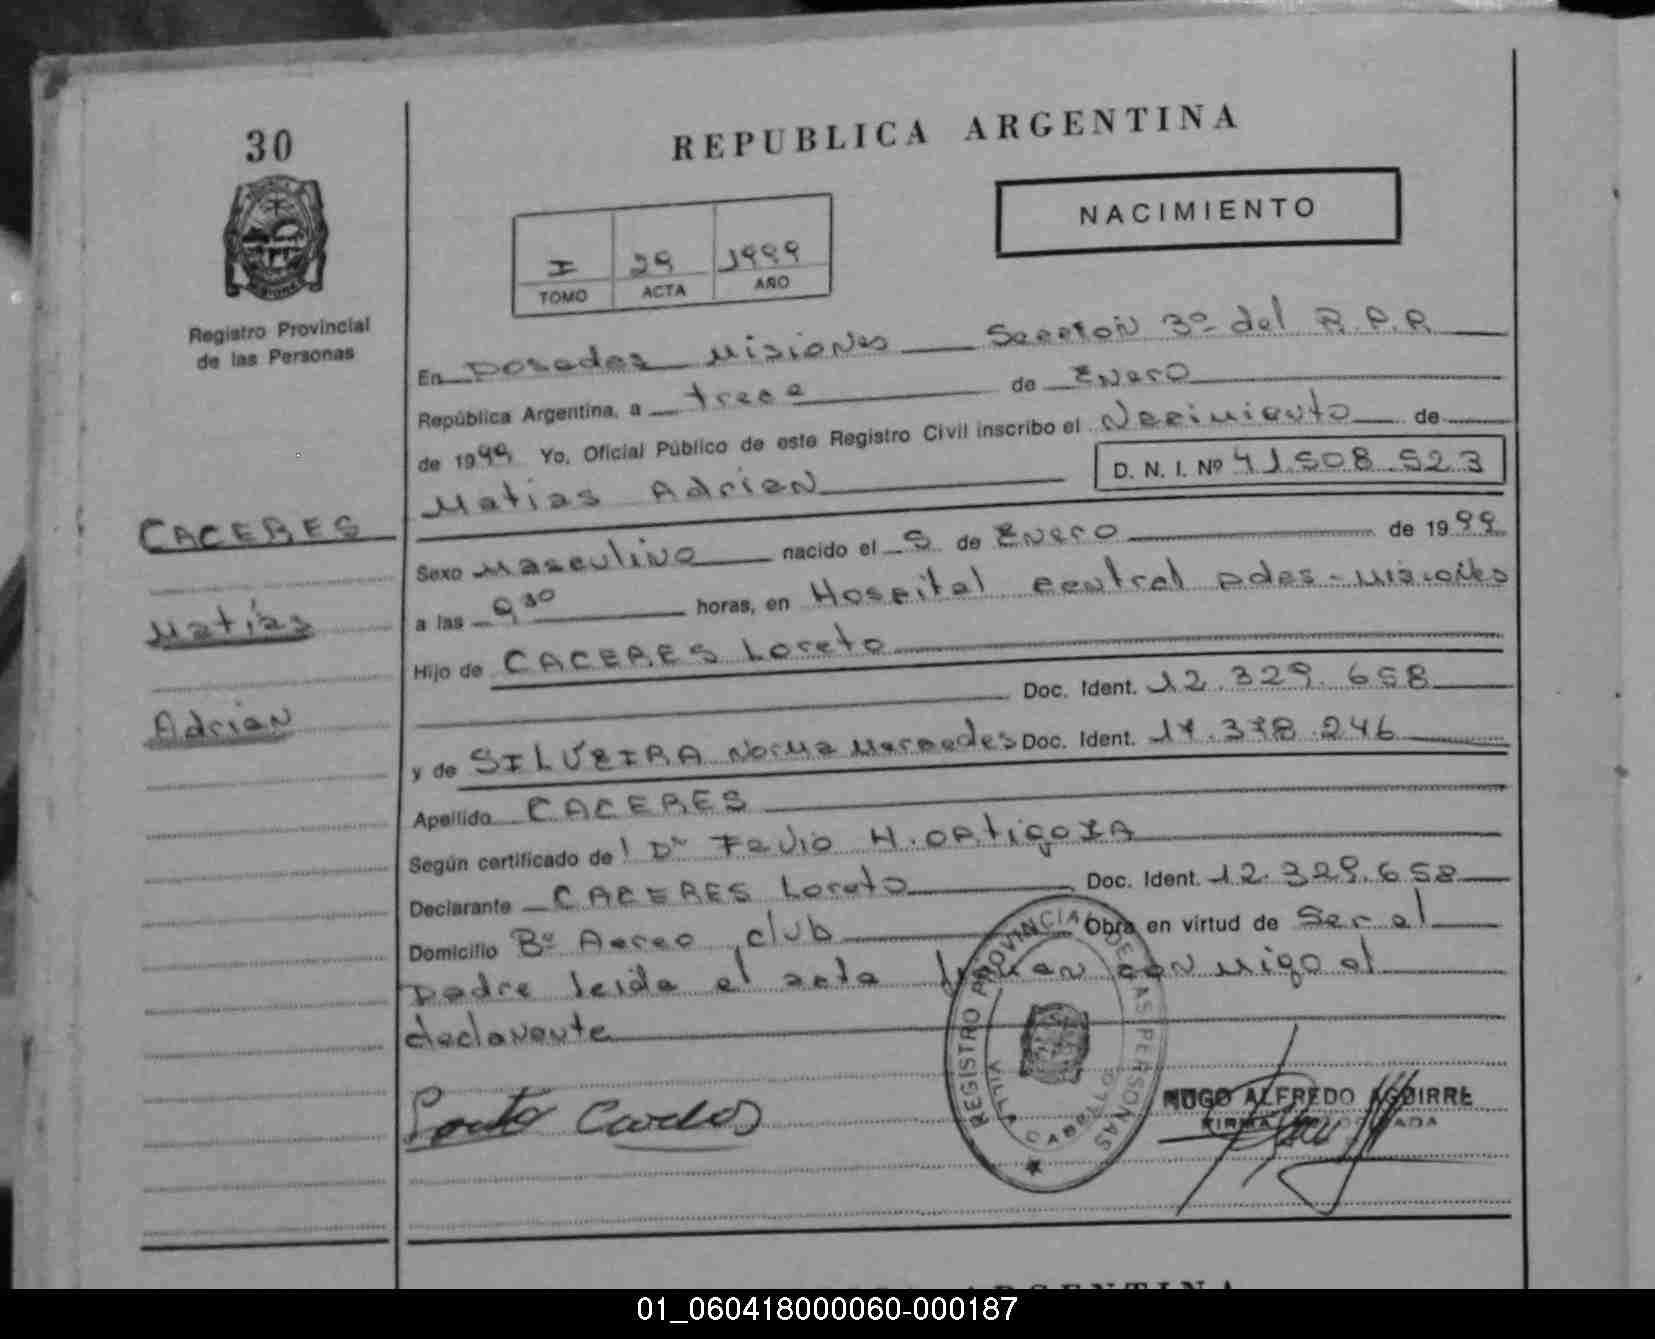 30
REPUBLICA ARGENTINA
NACIMIENTO
I 29 1999
TOMO ACTA AÑO
Registro Provincial
de las Personas
En Posadas Misiones Seccion 3º del R.P.P
República Argentina, a trece de Enero
de 1999 Yo, Oficial Público de este Registro Civil inscribo el Nacimiento de
Matias Adrian D. N. I. Nº 41.508.523
CACERES
Matías
Adrian
Sexo Masculino nacido el 5 de Enero de 1999
a las 9 30 horas, en Hospital central Pdas - Misiones
Hijo de CACERES Loreto
Doc. Ident. 12.329.658
y de SILVEIRA Norma Mercedes Doc. Ident. 17.378.246
Apellido CACERES
Según certificado del Dr Favio H. ORtigozA
Declarante CACERES Loreto Doc. Ident. 12.329.658
Domicilio Bº Aereo club Obra en virtud de Ser el
Padre leida el acta firman conmigo el
declarante
REGISTRO PROVINCIAL DE LAS PERSONAS
VILLA CABELLO
HUGO ALFREDO AGUIRRE
FIRMA
ARGENTINA
01_060418000060-000187